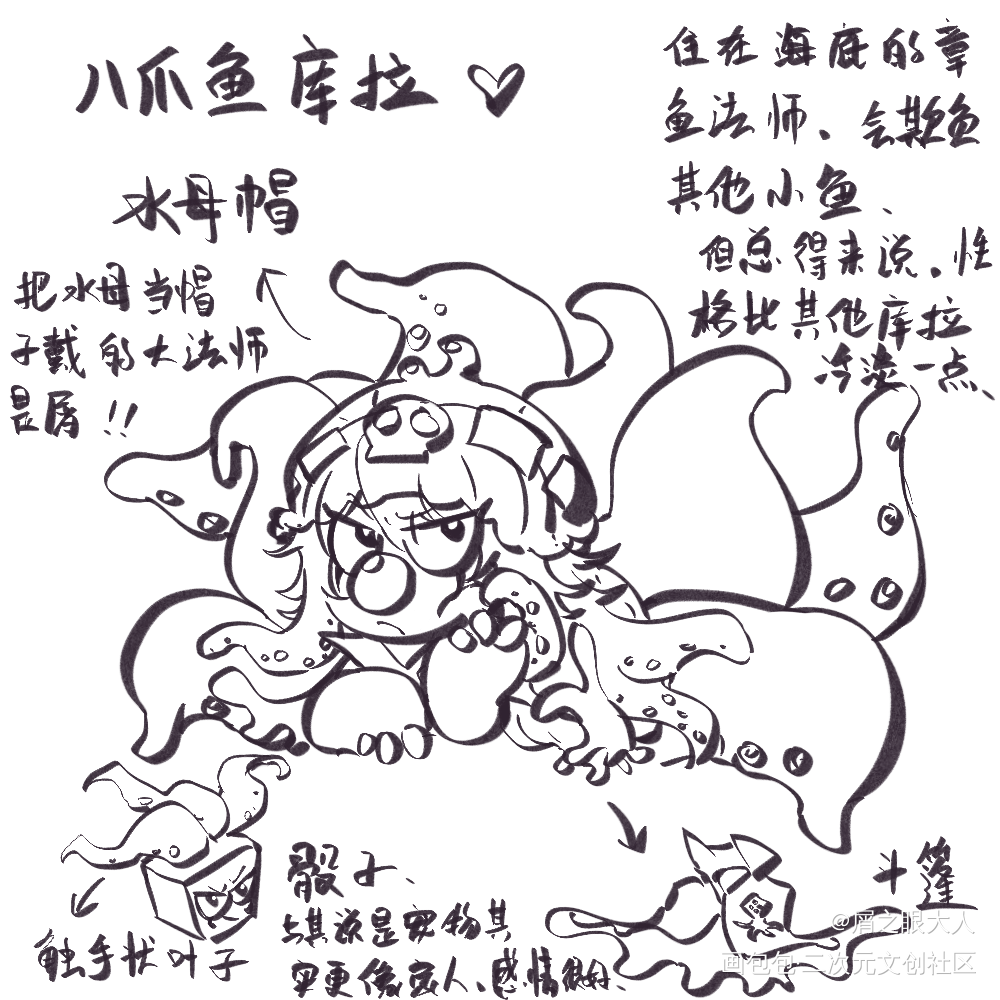 八爪鱼库拉
水母帽
把水母当帽
子戴的大法师
是屑!!
住在海底的章
鱼法师、会欺负
其他小鱼、
但总得来说。性
格比其他库拉
冷淡一点、
触手状叶子
骰子、
与其说是宠物其
实更像家人、感情很好、
斗篷
@屑之眼大人
画包包·二次元文创社区